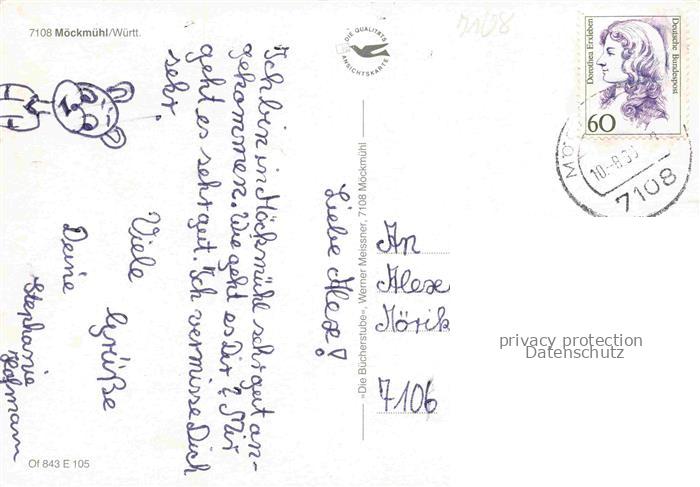 7108 Möckmühl/Württ.
Liebe Alex!
Ich bin in Möckmühl sehr gut an-
gekommen. Wie geht es Dir? Mir
geht es sehr gut. Ich vermisse Dich
sehr.
Viele Grüße
Deine
Stephanie
Hofmann
Of 843 E 105
DIE QUALITÄTS
ANSICHTSKARTE
»Die Bücherstube«, Werner Meissner, 7108 Möckmühl
7108
Dorothea Erxleben
Deutsche Bundespost
60
7108
An
Alexe
Mörik
7106
privacy protection
Datenschutz